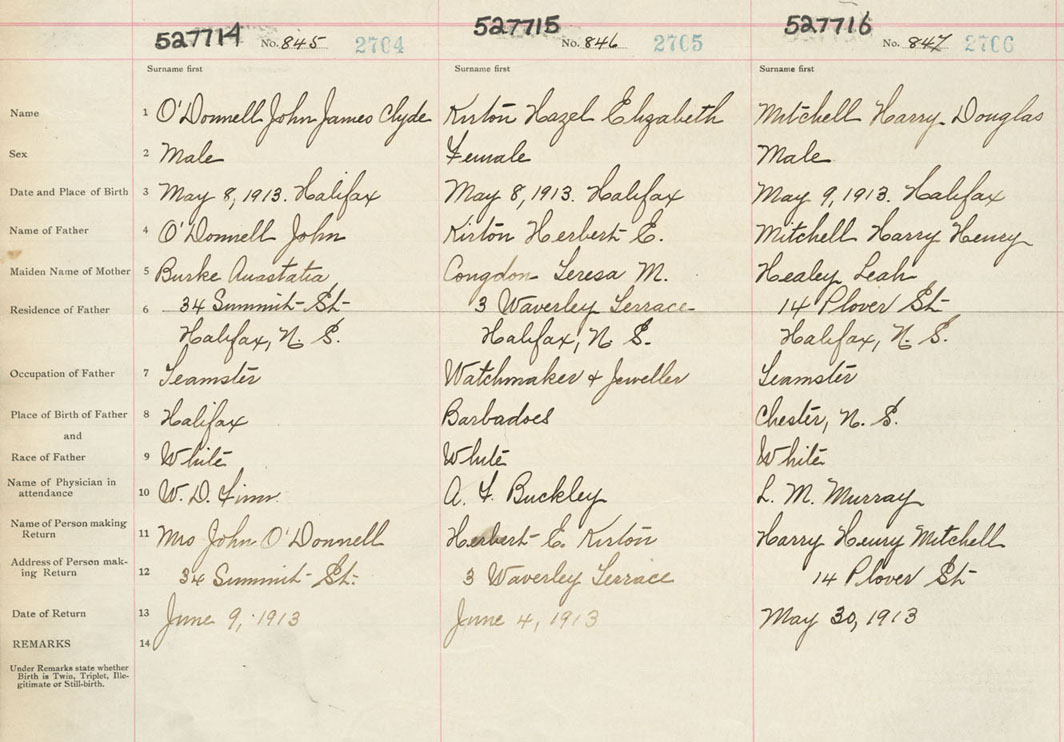 527714 No. 845 2704
527715 No. 846 2705
527716 No. 847 2706
Surname first Surname first Surname first
Name 1 O'Donnell John James Clyde Kirton Hazel Elizabeth Mitchell Harry Douglas
Sex 2 Male Female Male
Date and Place of Birth 3 May 8, 1913. Halifax May 8, 1913. Halifax May 9, 1913. Halifax
Name of Father 4 O'Donnell John Kirton Herbert E. Mitchell Harry Henry
Maiden Name of Mother 5 Burke Anastatia Congdon Teresa M. Healey Leah
Residence of Father 6 34 Summit St 3 Waverley Terrace 14 Plover St
Halifax, N. S. Halifax, N. S. Halifax, N. S.
Occupation of Father 7 Teamster Watchmaker & Jeweller Teamster
Place of Birth of Father 8 Halifax Barbadoes Chester, N. S.
and
Race of Father 9 White White White
Name of Physician in
attendance 10 W. D. Finn A. F. Buckley L. M. Murray
Name of Person making
Return 11 Mrs John O'Donnell Herbert E. Kirton Harry Henry Mitchell
Address of Person mak-
ing Return 12 34 Summit St. 3 Waverley Terrace 14 Plover St
Date of Return 13 June 9, 1913 June 4, 1913 May 30, 1913
REMARKS 14
Under Remarks state whether
Birth is Twin, Triplet, Ille-
gitimate or Still-birth.